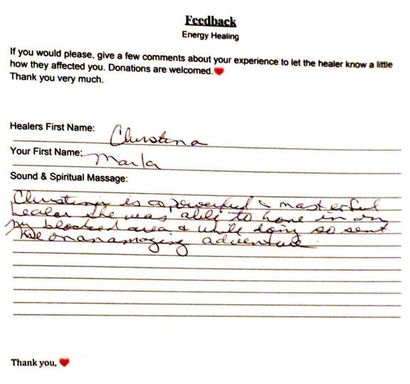 Feedback
Energy Healing
If you would please, give a few comments about your experience to let the healer know a little
how they affected you. Donations are welcomed.❤
Thank you very much.
Healers First Name: Christina
Your First Name: Marla
Sound & Spiritual Massage:
Christina is a powerful & masterful
healer she was able to hone in on
my blocked area & while doing so sent
me on an amazing adventure
Thank you, ❤